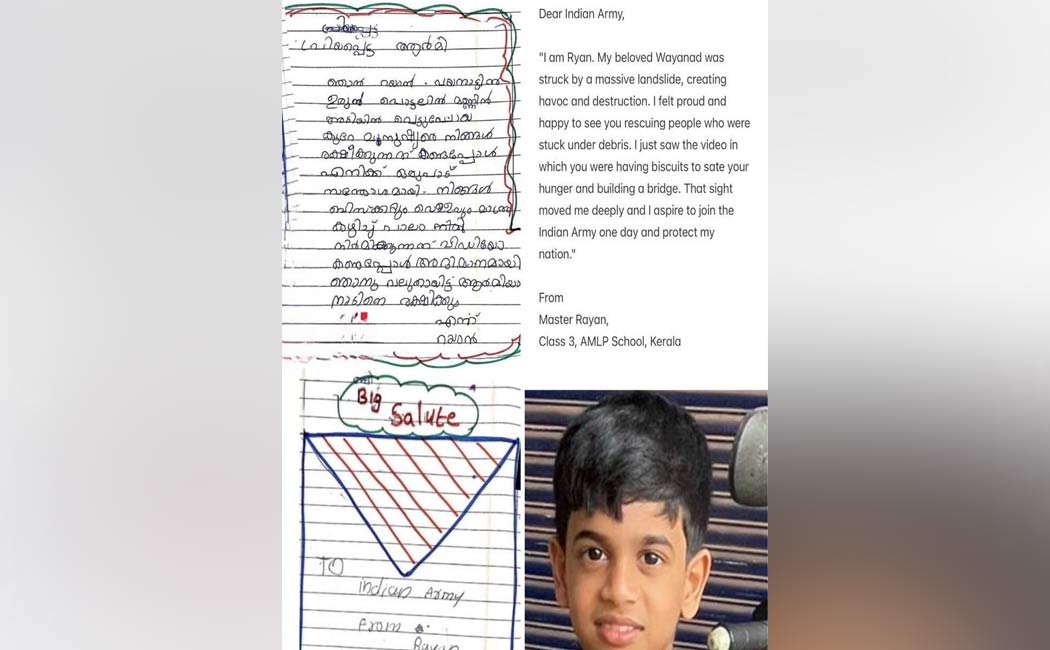 പ്രിയപ്പെട്ട ആർമി
ഞാൻ റയാൻ . വയനാട്ടിൽ
ഉരുൾ പൊട്ടലിൽ മണ്ണിൽ
അടിയിൽ പെട്ടുപോയ
കുറേ മനുഷ്യരെ നിങ്ങൾ
രക്ഷിക്കുന്നത് കണ്ടപ്പോൾ
എനിക്ക് ഒരുപാട്
സന്തോശമായി. നിങ്ങൾ
ബിസ്ക്കറ്റും വെള്ളവും മാത്രം
കഴിച്ച് പാലം
നിർമിക്കുന്നത് വിഡിയോ
കണ്ടപ്പോൾ അഭിമാനമായി
ഞാനും വലുതായിട്ട് ആർമിയാ
നാടിനെ രക്ഷിക്കും
എന്ന്
റയാൻ
Big
Salute
TO
indian Army
From
Rayan
Dear Indian Army,
"I am Ryan. My beloved Wayanad was
struck by a massive landslide, creating
havoc and destruction. I felt proud and
happy to see you rescuing people who were
stuck under debris. I just saw the video in
which you were having biscuits to sate your
hunger and building a bridge. That sight
moved me deeply and I aspire to join the
Indian Army one day and protect my
nation."
From
Master Rayan,
Class 3, AMLP School, Kerala